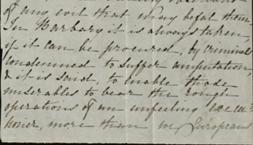 of any evil that may befal them
In Barbary it is always taken,
if it can be procured, by criminals
condemned to suffer amputation,
& it is said, to enable those
miserables to bear the rough
operations of an unfeeling
more than we Europeans